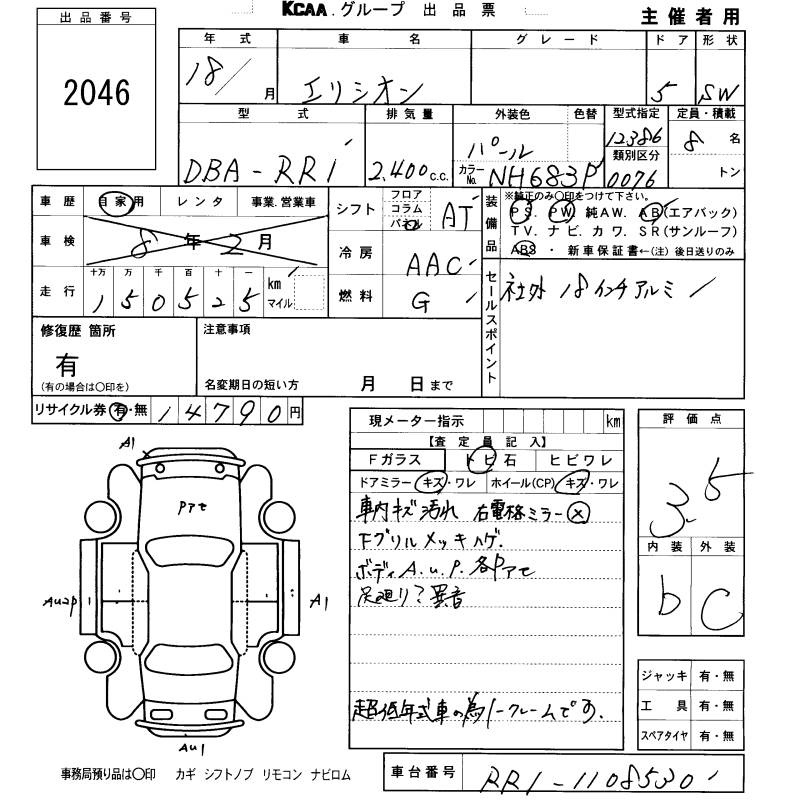 KCAA.グループ 出品票
主催者用
出品番号
2046
年式 車名 グレード ドア 形状
18/ 月 エリシオン 5 SW
型式 排気量 外装色 色替 型式指定 定員・積載
DBA-RR1 2,400c.c. パール 12386 8名
類別区分
カラーNo. NH683P 0076 トン
車歴 自家用 レンタ 事業.営業車
車検 8年2月
走行 十万 万 千 百 十 一
150525 km マイル
シフト フロア コラム パネル AT
冷房 AAC
燃料 G
装備品
※純正のみ〇印をつけて下さい。
PS. PW. 純AW. AB(エアバック)
TV. ナビ. カワ. SR(サンルーフ)
ABS ・ 新車保証書←(注)後日送りのみ
セールスポイント
社外 18インチアルミ
修復歴 箇所
有
(有の場合は〇印を)
注意事項
名変期日の短い方 月 日まで
リサイクル券 有・無 14790円
現メーター指示 km
【査定員記入】
Fガラス トビ石 ヒビワレ
ドアミラー キズ・ワレ ホイール(CP) キズ・ワレ
車内キズ汚れ 右電格ミラー×
Fグリルメッキハゲ.
ボディA.u.P.各Pアセ
足廻り?異音
超低年式車の為ノークレームです.
評価点
3.5
内装 外装
b C
ジャッキ 有・無
工具 有・無
スペアタイヤ 有・無
A1
Pアセ
Au2P
A1
Au1
事務局預り品は〇印 カギ シフトノブ リモコン ナビロム
車台番号 RR1-1108530